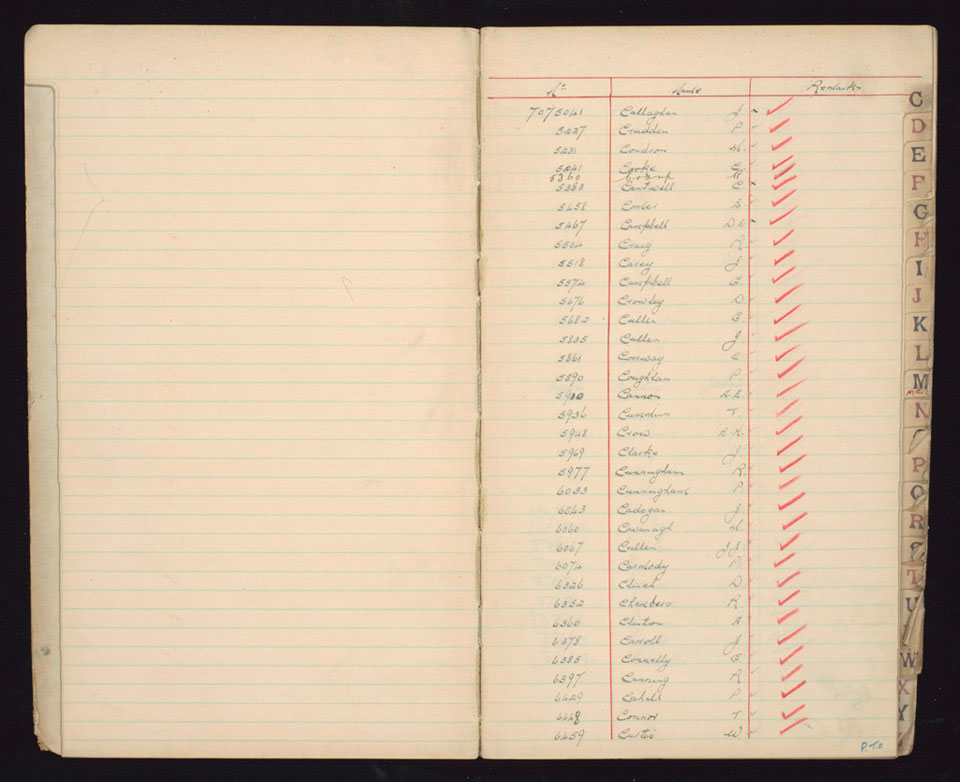 No Name Remarks
7075041 Callaghan J.
5227 Crudden P.
5231 Condron
5241 Cooke
5360
5383 Cantwell C
5458 Comber
5467 Campbell
5504 Craig R
5518 Carey J
5574 Campbell G.
5676 Crowley D.
5682 Cullen G.
5835 Cullen J.
5861 Conway C
5890 Coughlan P.
5910 Cannon
5936 Cummins T.
5948 Crow
5969 Clarke J.
5977 Cunningham R.
6033 Cunningham P
6043 Cadogan J
6060 Cavanagh
6067 Cullen J.J.
6074 Carmody P
6326 Clinch D.
6352 Chambers R
6360 Clinton A
6378 Carroll J
6385 Connelly G
6397 Canning R
6429 Cahill P
6448 Connor T
6459 Curtis W
P.T.O
C
D
E
F
G
H
I
J
K
L
M
Mc
N
P
Q
R
S
T
U
W
X
Y